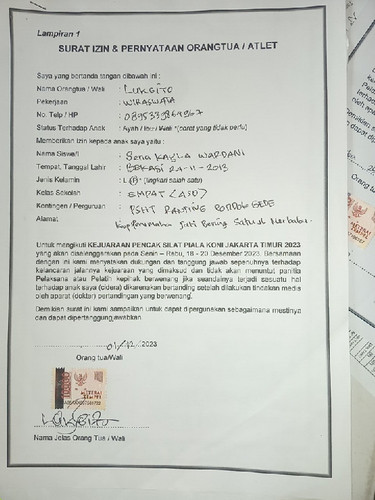 Lampiran 1
SURAT IZIN & PERNYATAAN ORANGTUA / ATLET
Saya yang bertanda tangan dibawah ini :
Nama Orangtua / Wali : LUKGITO
Pekerjaan : WIRASWATA
No. Telp / HP : 089533
Status Terhadap Anak : Ayah / Ibu / Wali *(coret yang tidak perlu)
Memberikan izin kepada anak saya yaitu :
Nama Siswa/i : Sena KAYLA WARDANI
Tempat, Tanggal Lahir : BEKASI 24-11-2013
Jenis Kelamin : L / P *(lingkari salah satu)
Kelas Sekolah : EMPAT (4SD)
Kontingen / Perguruan : PSHT RANTING PONDOK GEDE
Alamat : Jati Bening
Untuk mengikuti KEJUARAAN PENCAK SILAT PIALA KONI JAKARTA TIMUR 2023
yang akan diselenggarakan pada Senin – Rabu, 18 - 20 Desember 2023. Bersamaan
dengan ini kami menyatakan dukungan dan tanggung jawab sepenuhnya terhadap
kelancaran jalannya kejuaraan yang dimaksud dan tidak akan menuntut panitia
Pelaksana atau Pelatih kepihak berwenang jika seandainya terjadi sesuatu hal
terhadap anak saya (cidera) dikarenakan bertanding setelah dilakukan tindakan medis
oleh aparat (dokter) pertandingan yang berwenang.
Demikian surat ini kami sampaikan untuk dapat dipergunakan sebagaimana mestinya
dan dapat dipertanggungjawabkan.
01/12 2023
Orang tua/Wali
10000
METERAI
TEMPEL
Nama Jelas Orang Tua / Wali